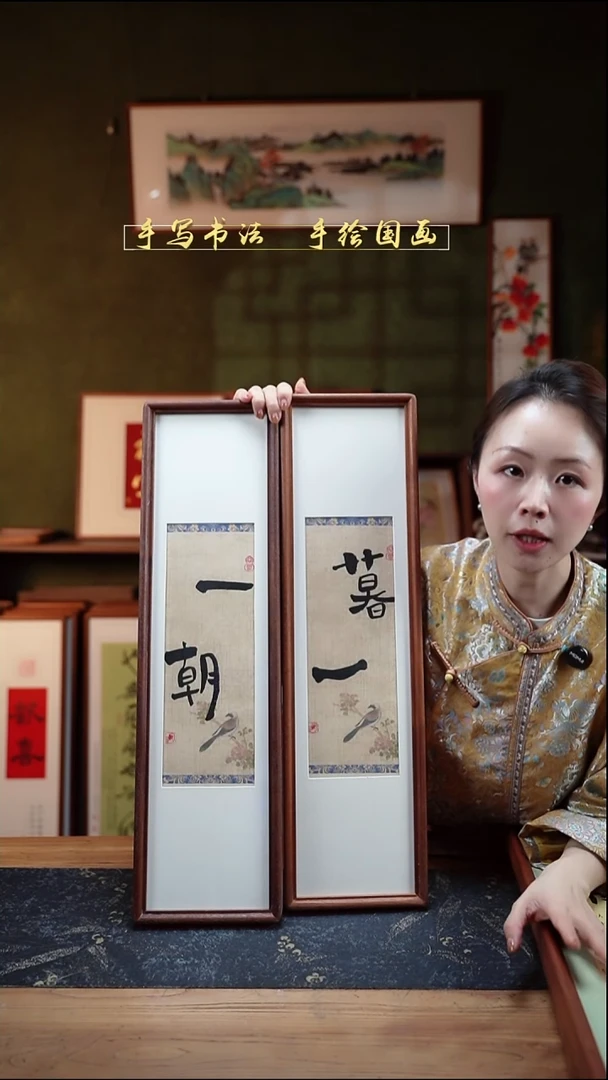 手写书法 手绘国画
一朝
暮一
歡喜